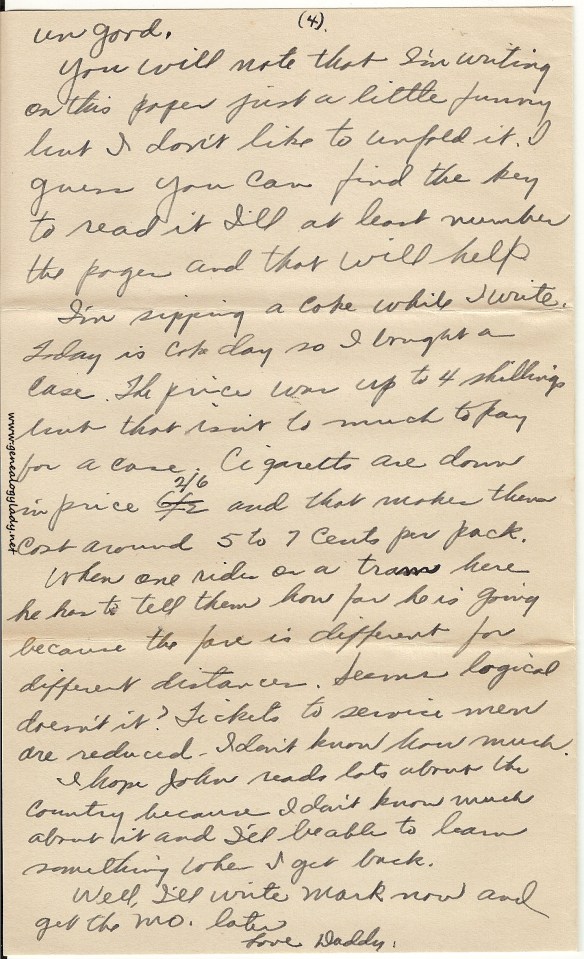 (4)
un good.
You will note that I'm writing
on this paper just a little funny
but I don't like to unfold it. I
guess you can find the key
to read it I'll at least number
the pages and that will help
I'm sipping a coke while I write.
Today is coke day so I bought a
case. The price was up to 4 shillings
but that isn't to much to pay
for a case. Cigaretts are down
2/6
in price 6/2 and that makes them
cost around 5 to 7 cents per pack.
When one rides on a tram here
he has to tell them how far he is going
because the fare is different for
different distances. Seems logical
doesn't it? Tickets to service men
are reduced - I don't know how much.
I hope John reads lots about the
country because I don't know much
about it and I'll be able to learn
something when I get back.
Well, I'll write Mark now and
get the MO. later
Love Daddy.
www.genealogylady.net